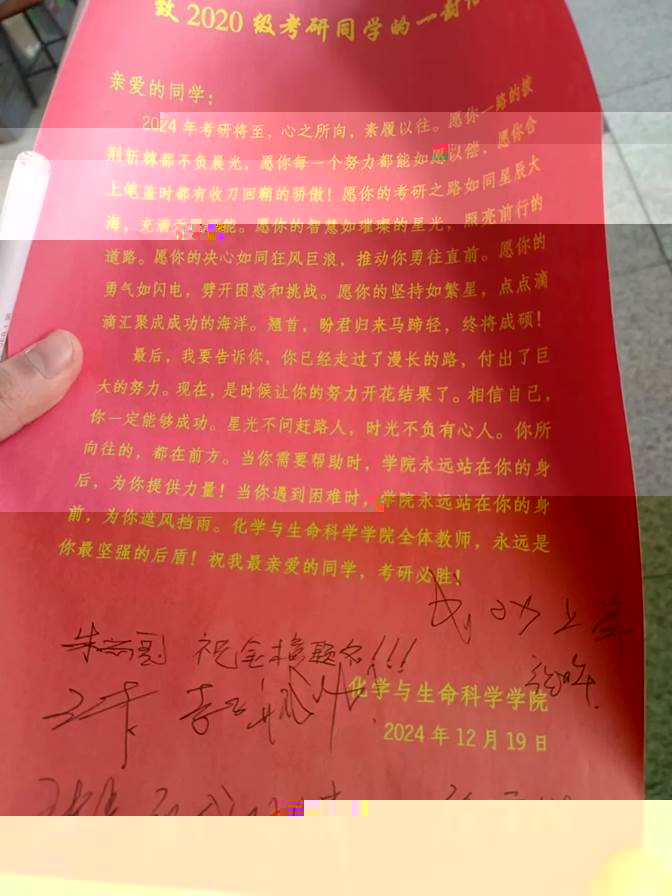 致 2020 级考研同学的一封信
亲爱的同学：
2024 年考研将至，心之所向，素履以往。愿你一路的披
荆斩棘都不负晨光，愿你每一个努力都能如愿以偿，愿你合
上笔盖时都有收刀回鞘的骄傲！愿你的考研之路如同星辰大
海，充满无限可能。愿你的智慧如璀璨的星光，照亮前行的
道路。愿你的决心如同狂风巨浪，推动你勇往直前。愿你的
勇气如闪电，劈开困惑和挑战。愿你的坚持如繁星，点点滴
滴汇聚成成功的海洋。翘首，盼君归来马蹄轻，终将成硕！
最后，我要告诉你，你已经走过了漫长的路，付出了巨
大的努力。现在，是时候让你的努力开花结果了。相信自己，
你一定能够成功。星光不问赶路人，时光不负有心人。你所
向往的，都在前方。当你需要帮助时，学院永远站在你的身
后，为你提供力量！当你遇到困难时，学院永远站在你的身
前，为你遮风挡雨。化学与生命科学学院全体教师，永远是
你最坚强的后盾！祝我最亲爱的同学，考研必胜！
成功上岸
祝金榜题名!!!
化学与生命科学学院
2024 年 12 月 19 日